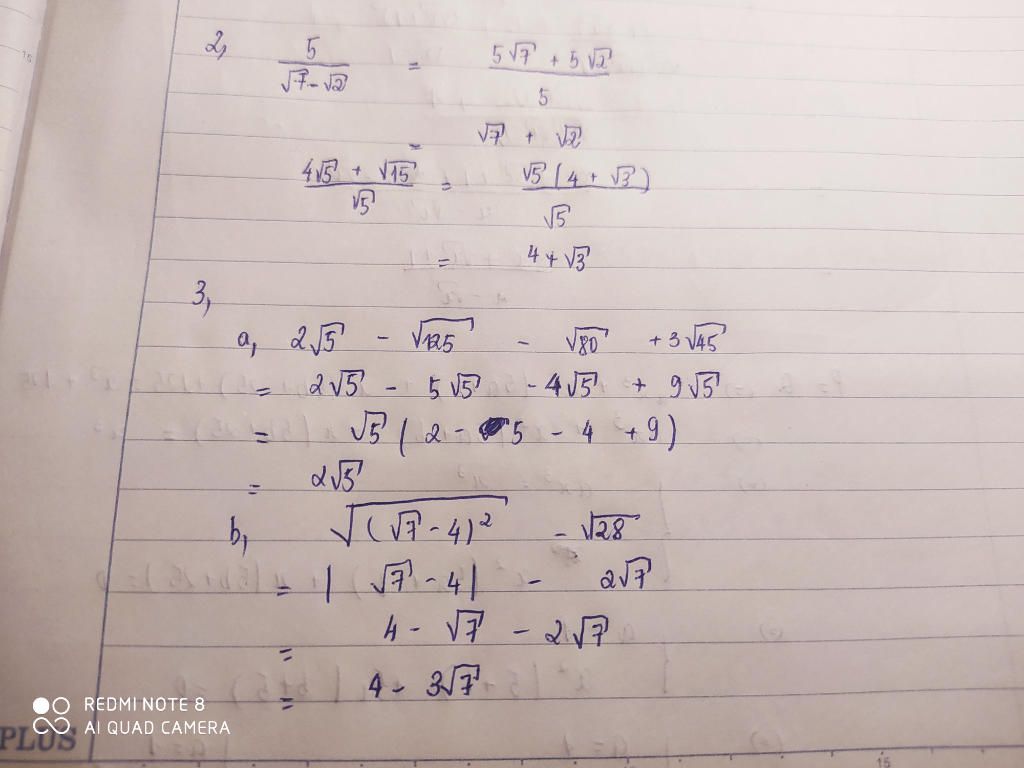 2, 5/(√7-√2) = (5√7 + 5√2)/5
= √7 + √2
(4√5 + √15)/√5 = √5(4 + √3)/√5
= 4+√3
3,
a, 2√5 - √125 - √80 + 3√45
= 2√5 - 5√5 - 4√5 + 9√5
= √5 (2 - 5 - 4 + 9)
= 2√5
b, √((√7 - 4)²) - √28
= |√7 - 4| - 2√7
= 4 - √7 - 2√7
= 4 - 3√7
REDMI NOTE 8
AI QUAD CAMERA
PLUS
15